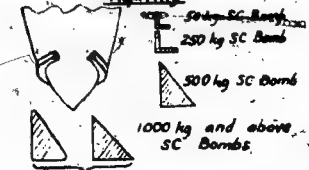 50 kg SC Bomb
250 kg SC Bomb
500 kg SC Bomb
1000 kg and above
SC Bombs